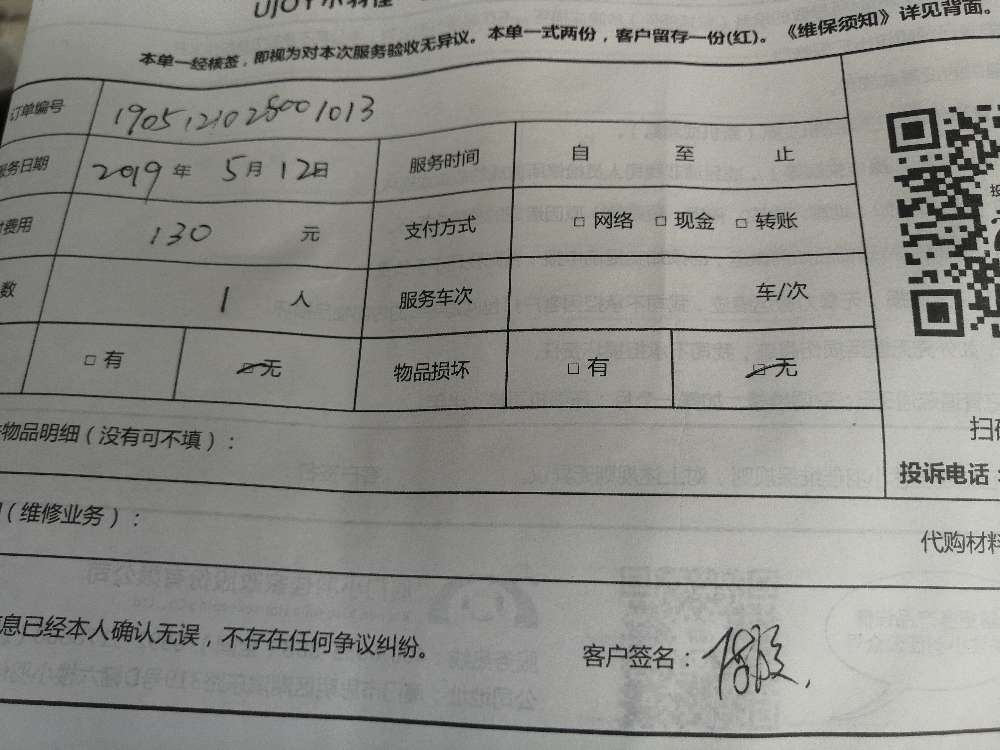 UJOY小羽佳
本单一经核签，即视为对本次服务验收无异议。本单一式两份，客户留存一份(红)。《维保须知》详见背面。
订单编号 1905121025001013
服务日期 2019年 5月12日 服务时间 自 至 止
费用 130 元 支付方式 □ 网络 □ 现金 □ 转账
数 1 人 服务车次 车/次
□ 有 □ 无 物品损坏 □ 有 □ 无
物品明细（没有可不填）：
扫码
投诉电话：
（维修业务）：
代购材料
信息已经本人确认无误，不存在任何争议纠纷。
客户签名：